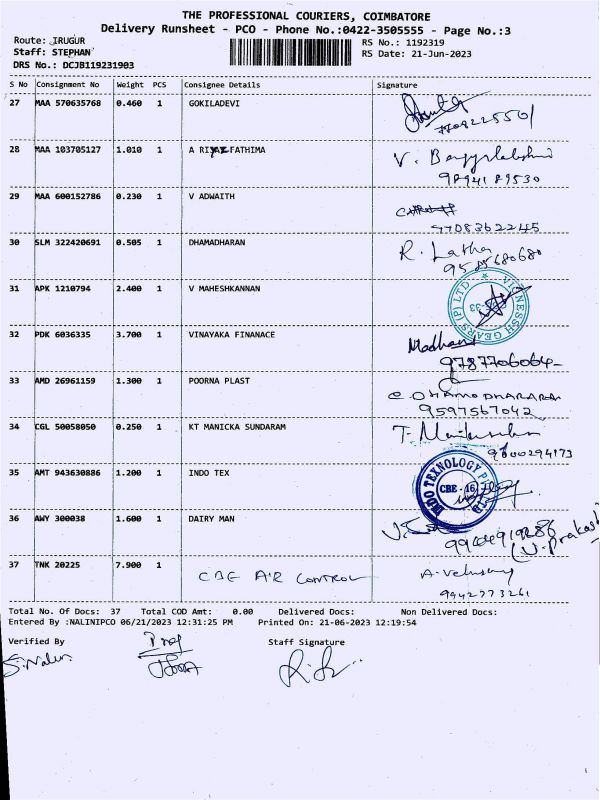 THE PROFESSIONAL COURIERS, COIMBATORE
Delivery Runsheet - PCO - Phone No.:0422-3505555 - Page No.:3
Route: IRUGUR RS No.: 1192319
Staff: STEPHAN RS Date: 21-Jun-2023
DRS No.: DCJB119231903
S No Consignment No Weight PCS Consignee Details Signature
27 MAA 570635768 0.460 1 GOKILADEVI
28 MAA 103705127 1.010 1 A FATHIMA V.
9894189530
29 MAA 600152786 0.230 1 V ADWAITH
30 SLM 322420691 0.505 1 DHAMADHARAN R. Latha
9585680680
31 APK 1210794 2.400 1 V MAHESHKANNAN
VIGNESSH GEARS(P)LTD
32 PDK 6036335 3.700 1 VINAYAKA FINANACE Madhan
9787706064
33 AMD 26961159 1.300 1 POORNA PLAST
9597567042
34 CGL 50058050 0.250 1 KT MANICKA SUNDARAM T.
9800294173
35 AMT 943630886 1.200 1 INDO TEX
INDO TEXNOLOGY CBE - 16
36 AWY 300038 1.600 1 DAIRY MAN
(U. Prakash
37 TNK 20225 7.900 1 CBE AIR CONTROL
9942773261
Total No. Of Docs: 37 Total COD Amt: 0.00 Delivered Docs: Non Delivered Docs:
Entered By :NALINIPCO 06/21/2023 12:31:25 PM Printed On: 21-06-2023 12:19:54
Verified By Staff Signature